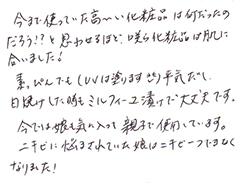 今まで使っていた高〜い化粧品は何だったの
だろう!?と思わせるほど、咲ら化粧品は肌に
合いました!
素っぴんでも(UVは塗りますが)平気だし、
日焼けした時もミルフィーユ漬けで大丈夫です。
今では娘も気に入って親子で使用しています。
ニキビに悩まされていた娘はニキビ一つできなく
なりました!